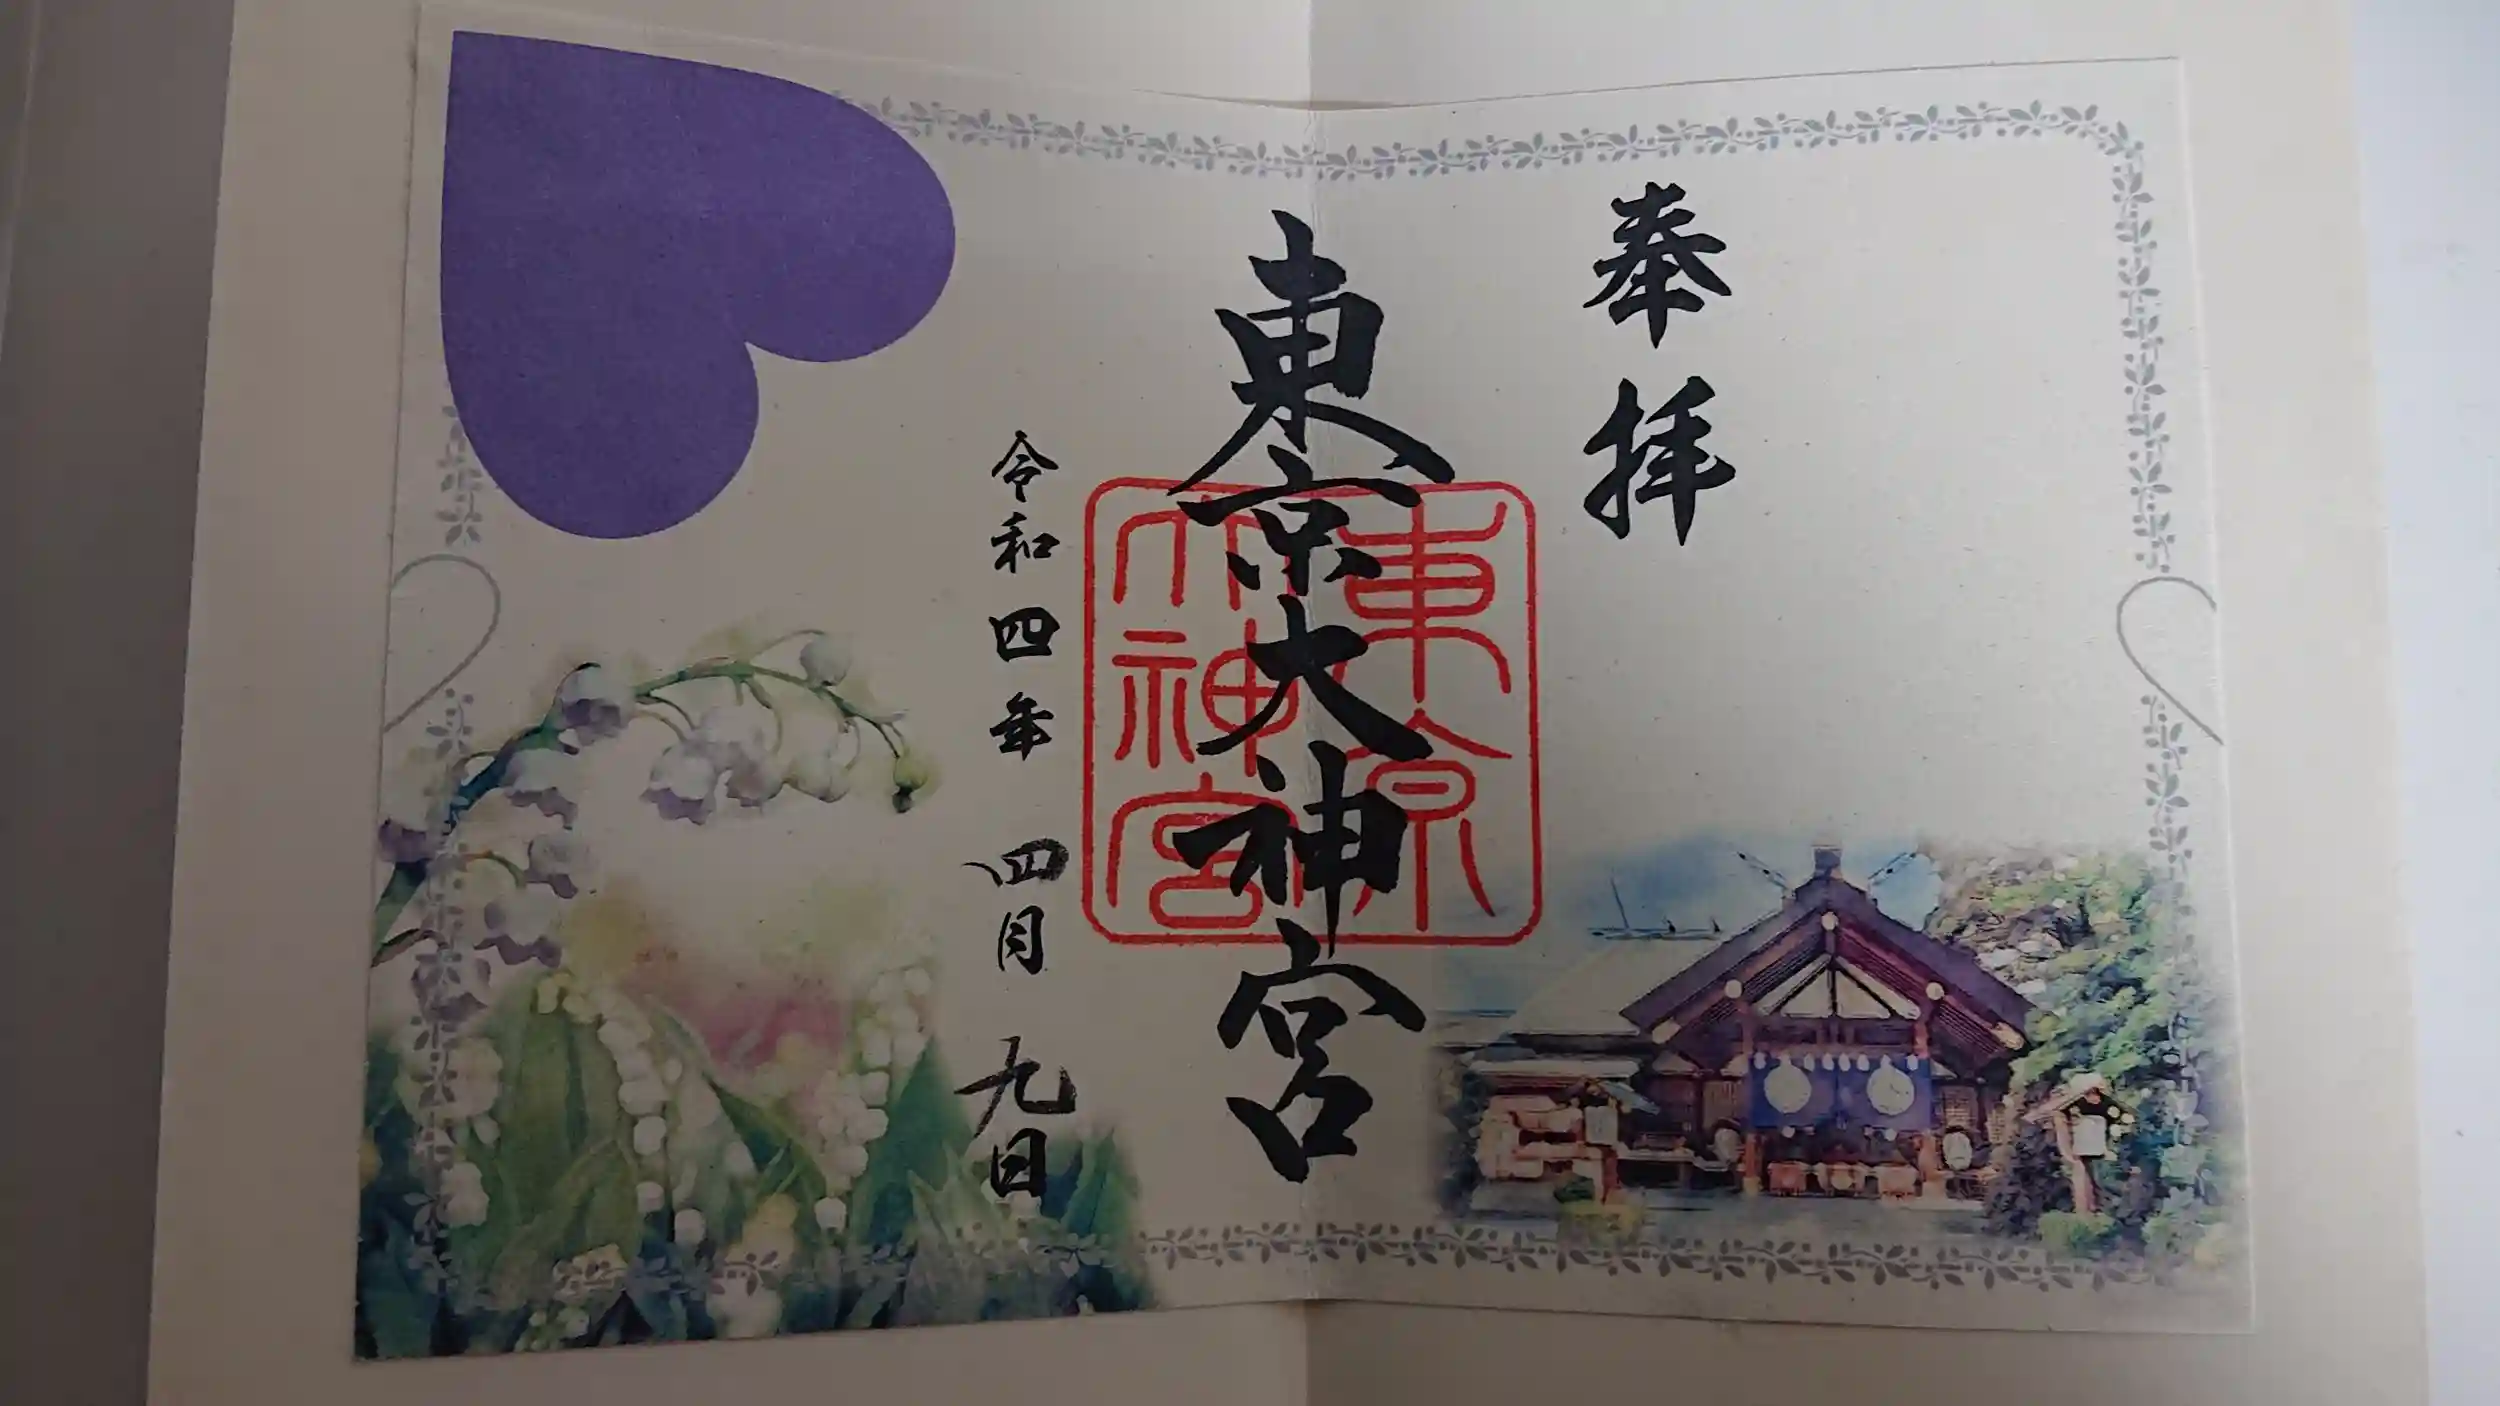 奉拝
東京大神宮
東京
大神宮
令和四年 四月 九日